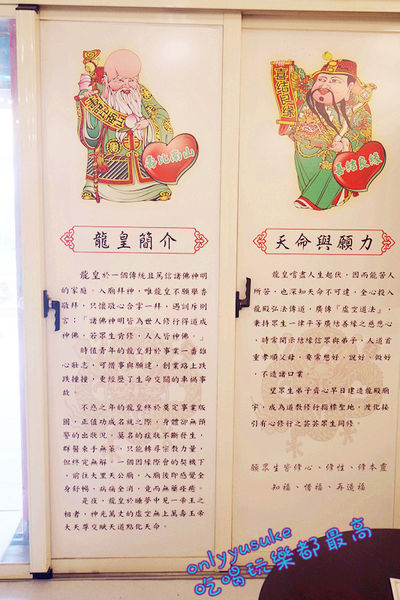 壽比南山
壽比南山
龍皇簡介
龍皇於一個傳統且篤信諸佛神明
的家庭。入廟拜神，唯龍皇不願舉香
敬拜，只懷敬心合掌一拜。遇訓斥則
言：「諸佛神明皆為世人修行得道成
神佛，若眾生肯修，人人皆神佛。」
時值青年的龍皇對於事業一番雄
心壯志，可惜事與願違，創業路上跌
跌撞撞，更經歷了生命交關的車禍事
故。
不惑之年的龍皇終於奠定事業版
圖，正值功成名就之際，身體卻無預
警的出狀況，莫名的症狀不斷發生，
群醫束手無策，只能轉尋宗教力量，
但終究無解。一個因緣際會的契機下
，前往大里天公廟，入廟後即感覺全
身舒暢，病痛全消，竟而無藥痊癒。
是夜，龍皇於睡夢中見一帝王之
相者，神光萬丈的虛空無上萬壽玉帝
大天尊交賦天道點化天命。
喜結良緣
喜結良緣
天命與願力
龍皇嚐盡人生起伏，因而能苦人
所苦，也深知天命不可違，全心投入
龍殿弘法傳道，廣傳「虛空道法」，
秉持眾生一律平等廣結善緣之慈悲心
，時常開示結緣信眾與弟子，人道首
重孝順父母，要常想好、說好、做好
，不造諸口業。
望眾生弟子齊心早日建造龍殿廟
宇，成為道教修行指標聖地，渡化接
引有心修行之芸芸眾生同修。
願眾生皆修心、修性、修本靈
知福、惜福、再造福
onlyyusuke
吃喝玩樂都最高